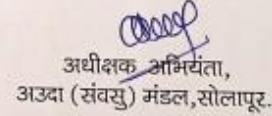 अधीक्षक अभियंता,
अउदा (संवसु) मंडल,सोलापूर.